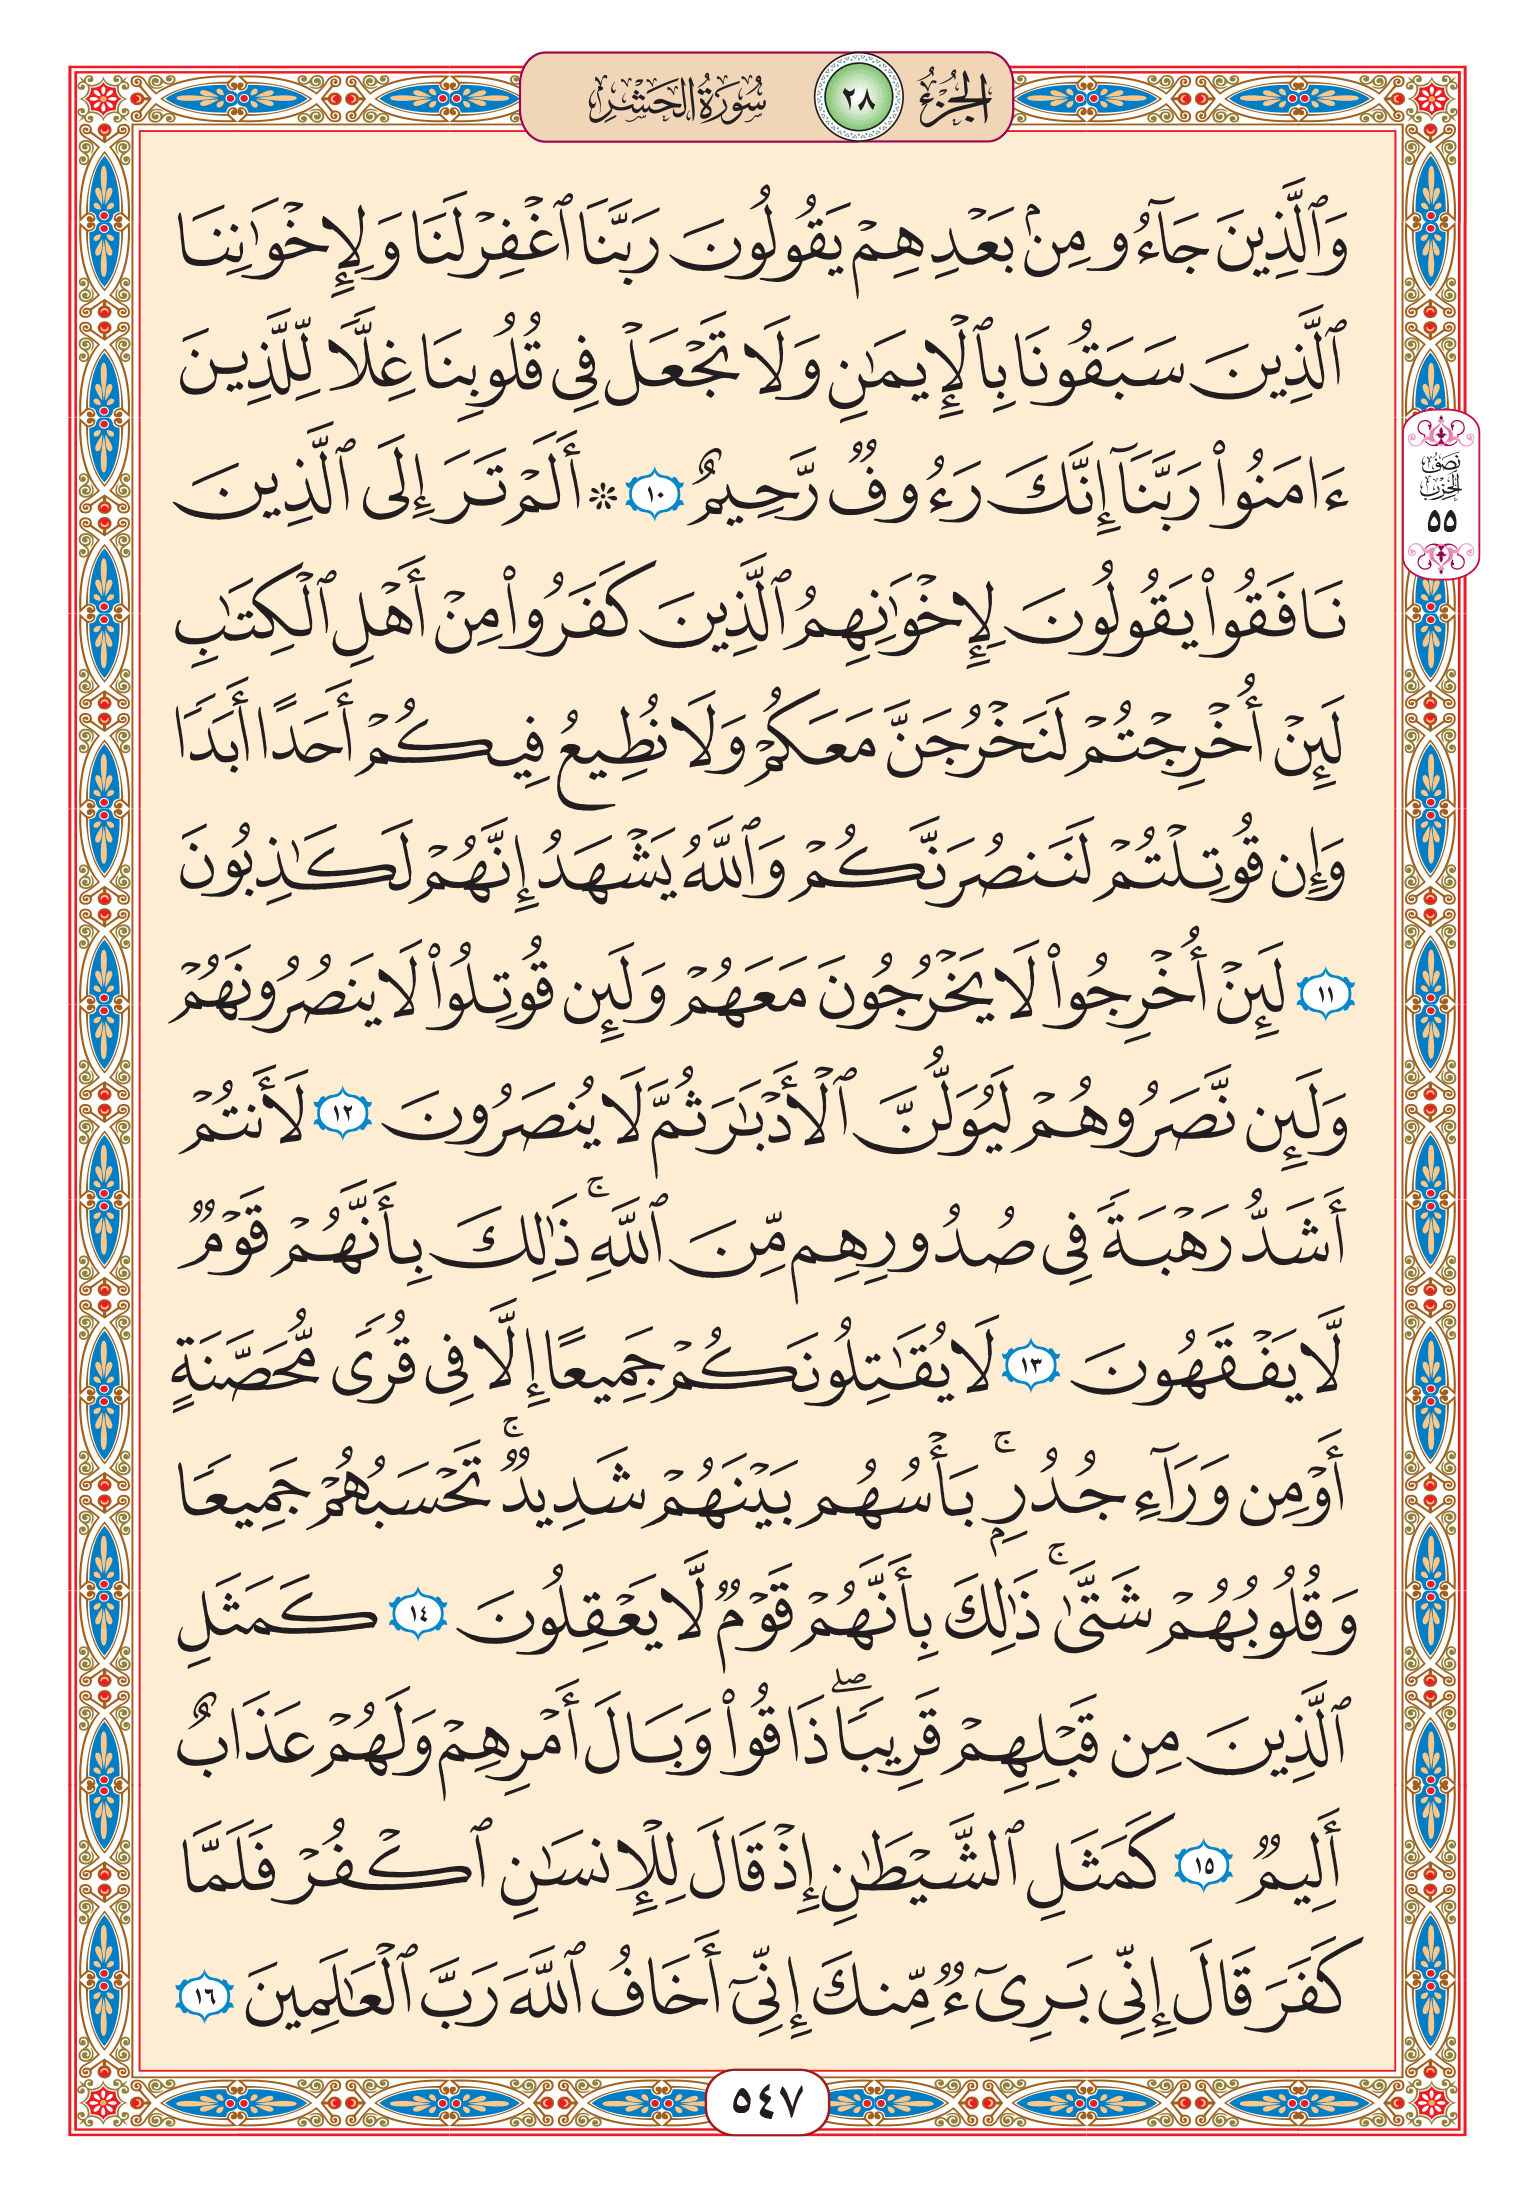 الجزء ٢٨ سورة الحشر
وَٱلَّذِينَ جَآءُو مِنۢ بَعْدِهِمْ يَقُولُونَ رَبَّنَا ٱغْفِرْ لَنَا وَلِإِخْوَٰنِنَا
ٱلَّذِينَ سَبَقُونَا بِٱلْإِيمَٰنِ وَلَا تَجْعَلْ فِى قُلُوبِنَا غِلًّا لِّلَّذِينَ
ءَامَنُوا۟ رَبَّنَآ إِنَّكَ رَءُوفٌ رَّحِيمٌ ١٠ ۞ أَلَمْ تَرَ إِلَى ٱلَّذِينَ
نَافَقُوا۟ يَقُولُونَ لِإِخْوَٰنِهِمُ ٱلَّذِينَ كَفَرُوا۟ مِنْ أَهْلِ ٱلْكِتَٰبِ
لَئِنْ أُخْرِجْتُمْ لَنَخْرُجَنَّ مَعَكُمْ وَلَا نُطِيعُ فِيكُمْ أَحَدًا أَبَدًا
وَإِن قُوتِلْتُمْ لَنَنصُرَنَّكُمْ وَٱللَّهُ يَشْهَدُ إِنَّهُمْ لَكَٰذِبُونَ
١١ لَئِنْ أُخْرِجُوا۟ لَا يَخْرُجُونَ مَعَهُمْ وَلَئِن قُوتِلُوا۟ لَا يَنصُرُونَهُمْ
وَلَئِن نَّصَرُوهُمْ لَيُوَلُّنَّ ٱلْأَدْبَٰرَ ثُمَّ لَا يُنصَرُونَ ١٢ لَأَنتُمْ
أَشَدُّ رَهْبَةً فِى صُدُورِهِم مِّنَ ٱللَّهِ ۚ ذَٰلِكَ بِأَنَّهُمْ قَوْمٌ
لَّا يَفْقَهُونَ ١٣ لَا يُقَٰتِلُونَكُمْ جَمِيعًا إِلَّا فِى قُرًى مُّحَصَّنَةٍ
أَوْ مِن وَرَآءِ جُدُرٍۭ ۚ بَأْسُهُم بَيْنَهُمْ شَدِيدٌ ۚ تَحْسَبُهُمْ جَمِيعًا
وَقُلُوبُهُمْ شَتَّىٰ ۚ ذَٰلِكَ بِأَنَّهُمْ قَوْمٌ لَّا يَعْقِلُونَ ١٤ كَمَثَلِ
ٱلَّذِينَ مِن قَبْلِهِمْ قَرِيبًا ۖ ذَاقُوا۟ وَبَالَ أَمْرِهِمْ وَلَهُمْ عَذَابٌ
أَلِيمٌ ١٥ كَمَثَلِ ٱلشَّيْطَٰنِ إِذْ قَالَ لِلْإِنسَٰنِ ٱكْفُرْ فَلَمَّا
كَفَرَ قَالَ إِنِّى بَرِىٓءٌ مِّنكَ إِنِّىٓ أَخَافُ ٱللَّهَ رَبَّ ٱلْعَٰلَمِينَ ١٦
نصف
الحزب
٥٥
٥٤٧